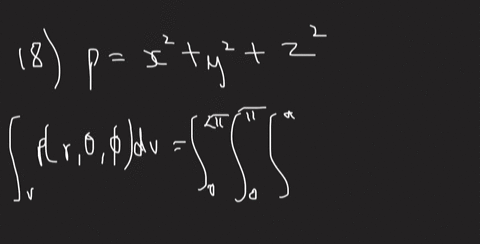 18) p = x² + y² + z²
∫ᵥ p(r, θ, ϕ)dv = ∫₀^{2π} ∫₀^{π} ∫